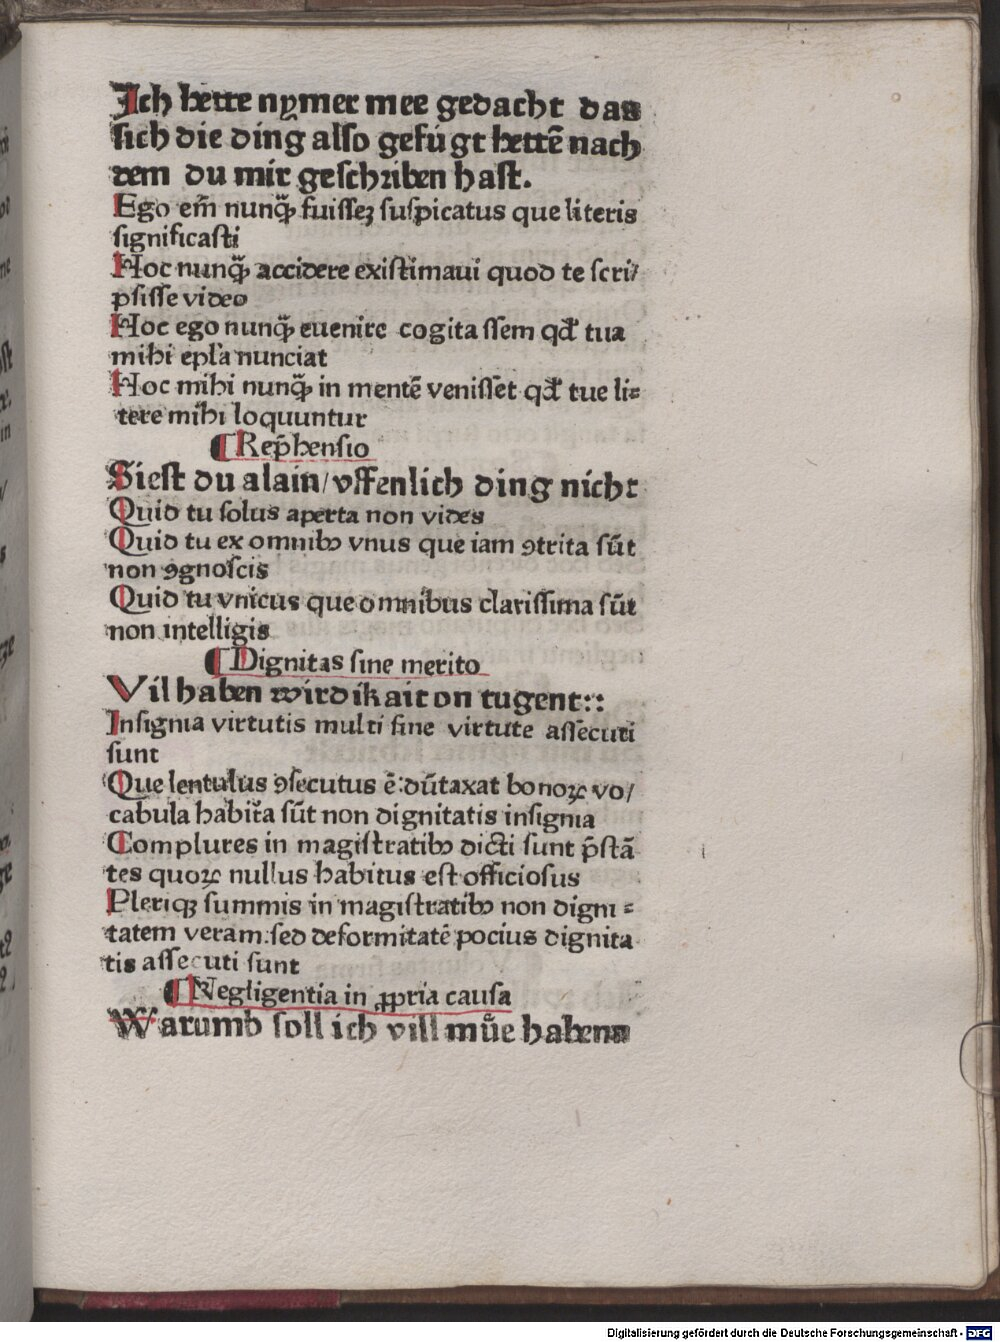 Ich hette nymer mee gedacht das
sich die ding also gefúgt hettē nach
dem du mir geschriben hast.
Ego em̄ nunq̄ȝ fuisseȝ suspicatus que literis
significasti
Hoc nunq̄ȝ accidere existimaui quod te scri/
psisse video
Hoc ego nunq̄ȝ euenire cogitassem qd̄ tua
mihi epl̄a nunciat
Hoc mihi nunq̄ȝ in mentē venisset qd̄ tue li⸗
tere mihi loquuntur
¶ Rep̄hensio
Siest du alain/ vffenlich ding nicht
Quid tu solus aperta non vides
Quid tu ex omnibꝰ vnus que iam ꝯtrita sūt
non ꝯgnoscis
Quid tu vnicus que omnibus clarissima sūt
non intelligis
¶ Dignitas sine merito
Vil haben wirdikait on tugent::
Insignia virtutis multi sine virtute assecuti
sunt
Que lentulus ꝯsecutus ē:dūtaxat bonoꝝ vo/
cabula habit̄a sūt non dignitatis insignia
Complures in magistratibꝰ dicti sunt p̄stā
tes quoꝝ nullus habitus est officiosus
Pleriqȝ summis in magistratibꝰ non digni⸗
tatem veram:sed deformitatē pocius dignita
tis assecuti sunt
¶ Negligentia in ꝓpria causa
Warumb soll ich vill můe habenn
Digitalisierung gefördert durch die Deutsche Forschungsgemeinschaft - DFG